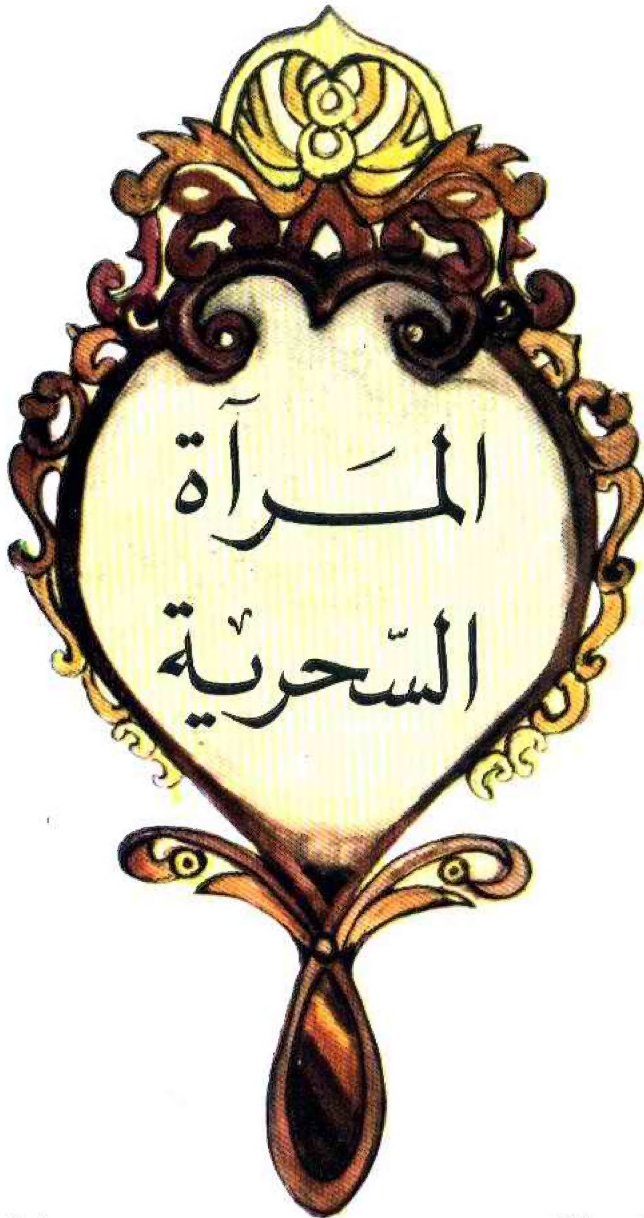 المَرآة
السّحرية